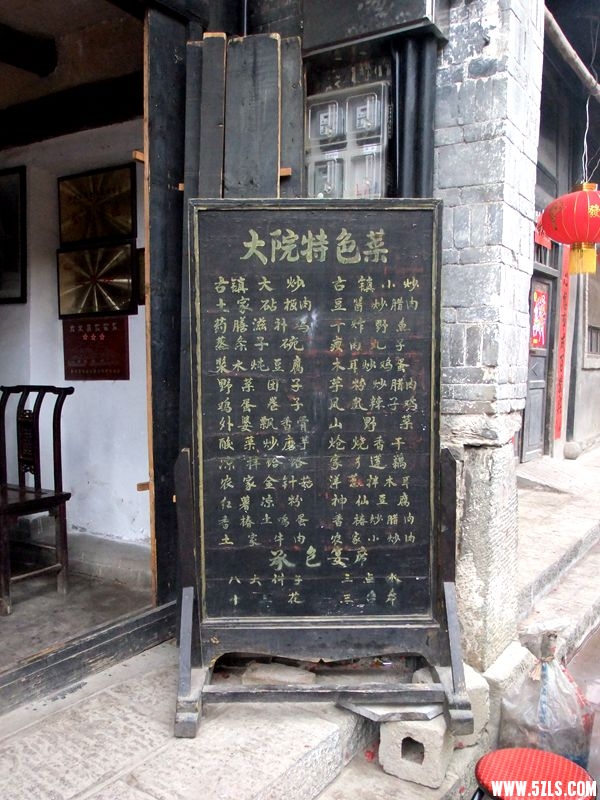 大院特色菜
古镇大炒 古镇小炒
土家砧板肉 豆酱炒腊肉
药膳滋补鸡 干炸野鱼
蒸条子碗 瘦肉丸子
浆水炖豆腐 木耳炒鸡蛋
野菜团子 芋特炒腊肉
鸡蛋卷子 风味辣子鸡
外婆飘香骨 山野菜
酸菜炒魔芋 炝烧香干
凉拌洛 家莲藕
农家金针菇 洋葱拌木耳
红薯凉粉 神仙豆腐
香椿土鸡蛋 香椿炒腊肉
土家牛肉 农家小炒肉
色宴席
八大 子 三点水
十 花 三
發
WWW.5ZLS.COM